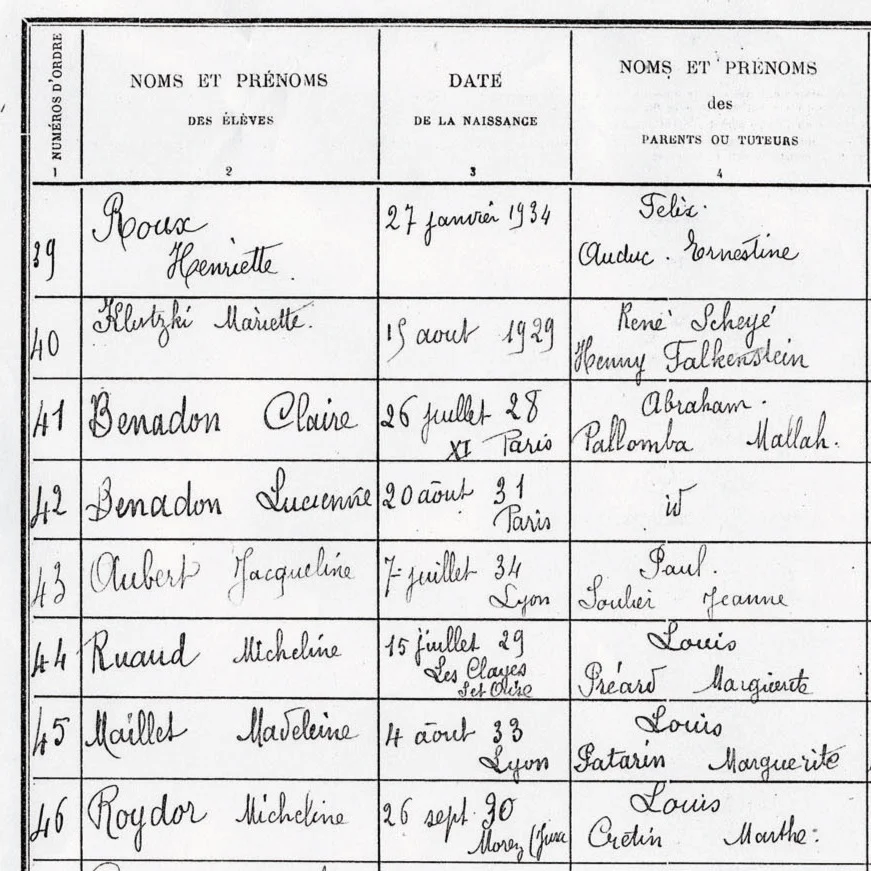 NUMÉROS D'ORDRE
1
NOMS ET PRÉNOMS
DES ÉLÈVES
2
DATE
DE LA NAISSANCE
3
NOMS ET PRÉNOMS
des
PARENTS OU TUTEURS
4
39
Roux
Henriette
27 janvier 1934
Felix.
Auduc. Ernestine
40
Klutzki Mariette.
15 aout 1929
René Scheyé
Henny Falkenstein
41
Benadon Claire
26 juillet 28
XI Paris
Abraham.
Pallomba Mallah.
42
Benadon Lucienne
20 aout 31
Paris
id
43
Aubert Jacqueline
7 juillet 34
Lyon
Paul.
Soulier Jeanne
44
Ruaud Micheline
15 juillet 29
Les Clayes
S et Oise
Louis
Préard Marguerite
45
Maillet Madeleine
4 aout 33
Lyon
Louis
Patarin Marguerite
46
Roydor Micheline
26 sept. 30
Morez (Jura
Louis
Cretin Marthe.